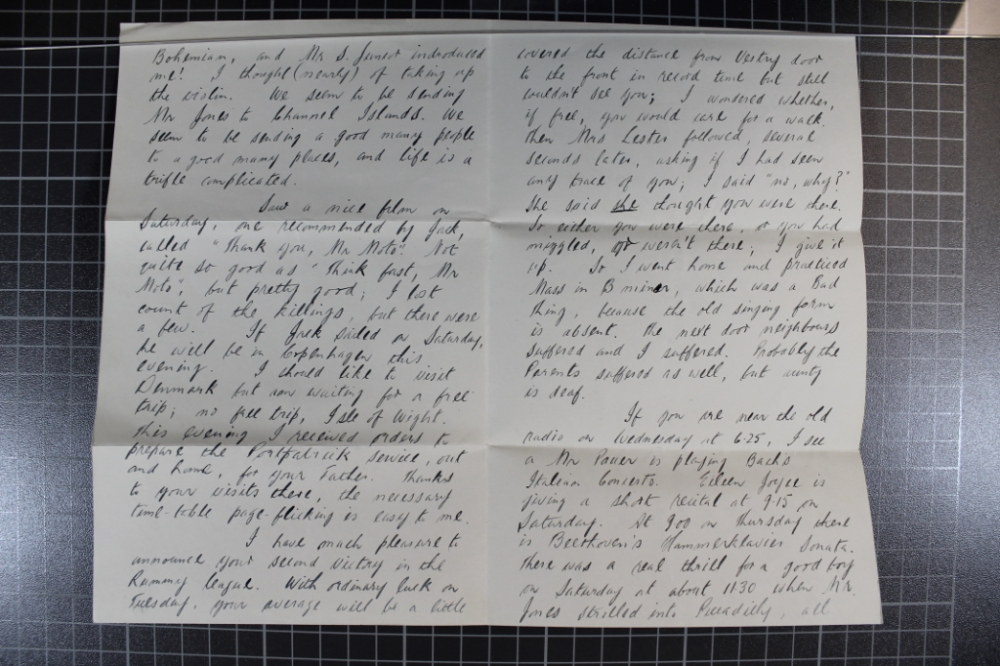 Bohemian, and Mr S. Junior introduced
me! I thought (nearly) of taking up
the violin. We seem to be sending
Mr Jones to Channel Islands. We
seem to be sending a good many people
to a good many places, and life is a
trifle complicated.
Saw a nice film on
Saturday, one recommended by Jack,
called "Thank you, Mr Moto". Not
quite so good as "Think fast, Mr
Moto", but pretty good; I lost
count of the killings, but there were
a few. If Jack sailed on Saturday,
he will be in Copenhagen this
evening. I should like to visit
Denmark but am waiting for a free
trip; no free trip, Isle of Wight.
This evening I received orders to
prepare the Portpatrick service, out
and home, for your Father. Thanks
to your visits there, the necessary
time-table page-flicking is easy to me.
I have much pleasure to
announce your second victory in the
Rummy league. With ordinary luck on
Tuesday, your average will be a little
covered the distance from Vestry door
to the front in record time but still
couldn't see you; I wondered whether,
if free, you would care for a walk.
Then Mrs Lester followed, several
seconds later, asking if I had seen
any trace of you; I said "no, why?"
She said she thought you were there.
So either you were there, or you had
miggled, or weren't there; I give it
up. So I went home and practiced
Mass in B minor, which was a Bad
thing, because the old singing form
is absent. The next door neighbours
suffered and I suffered. Probably the
Parents suffered as well, but aunty
is deaf.
If you are near the old
radio on Wednesday at 6.25, I see
a Mr Pauer is playing Bach's
Italian Concerto. Eileen Joyce is
giving a short recital at 9.15 on
Saturday. At 9.00 on Thursday there
is Beethoven's Hammerklavier Sonata.
There was a real thrill for a good boy
on Saturday at about 11.30 when Mr.
Jones strolled into Piccadilly, all